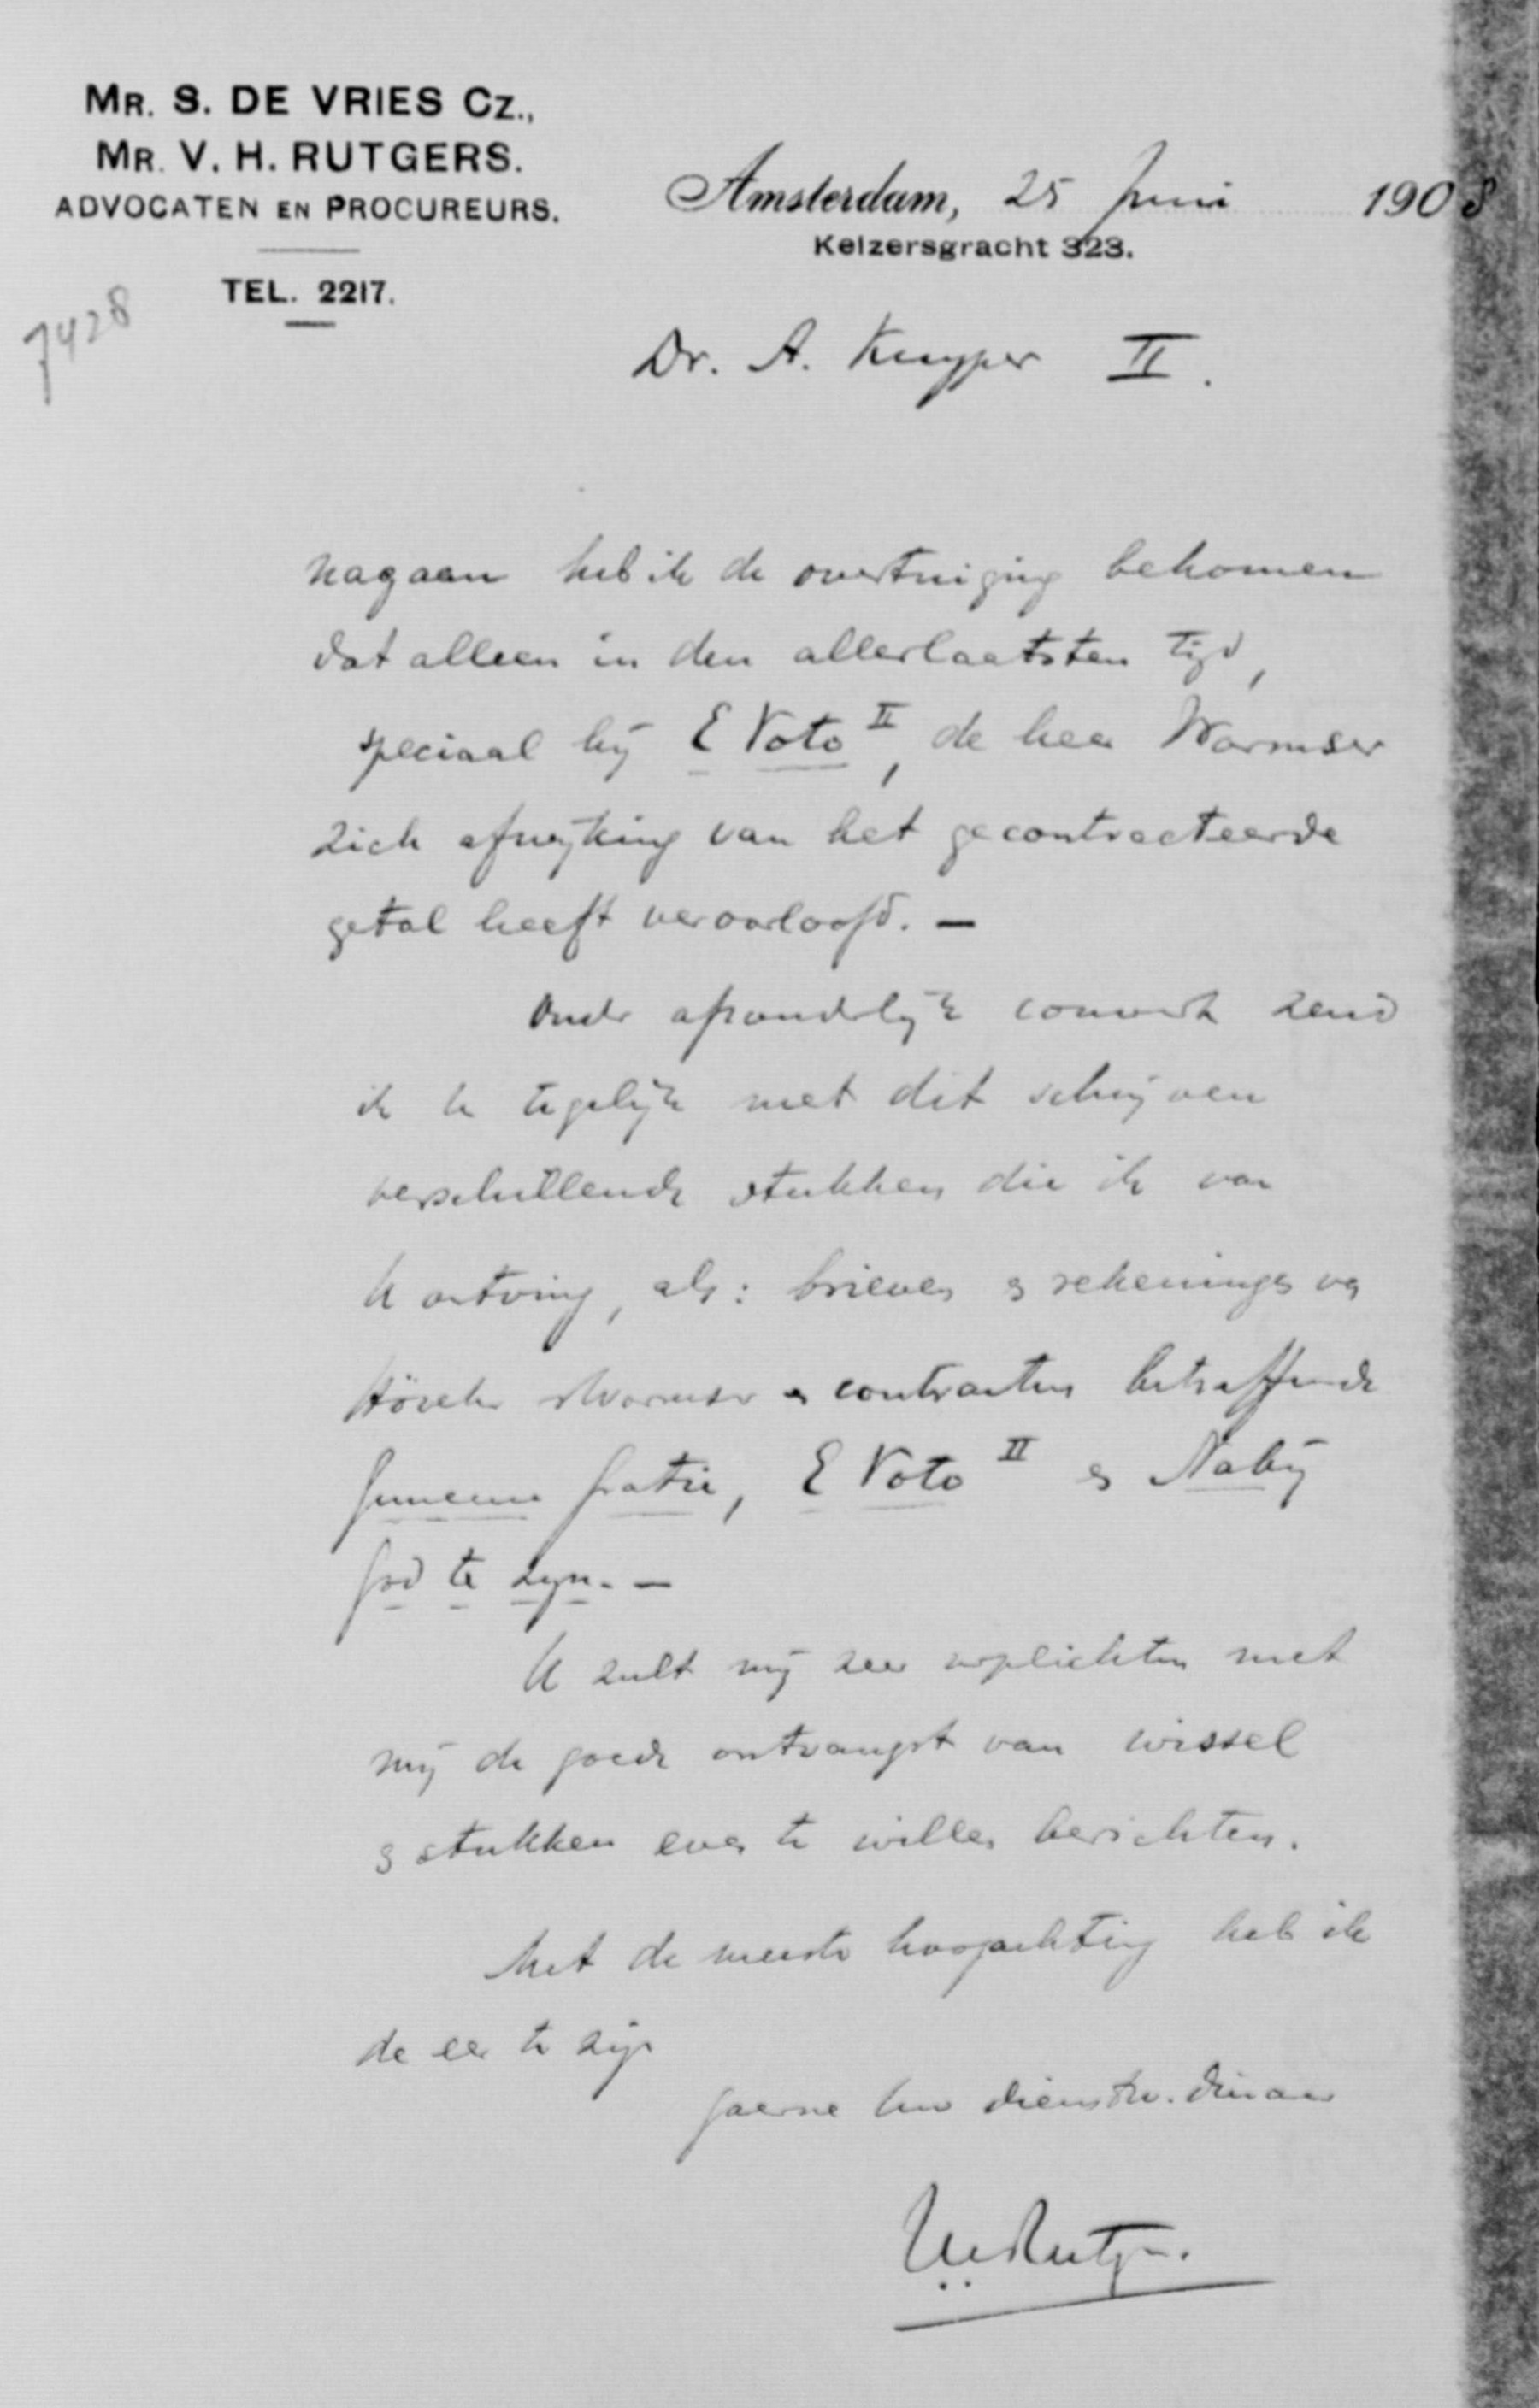 MR. S. DE VRIES CZ.,
MR. V. H. RUTGERS.
ADVOCATEN EN PROCUREURS.
TEL. 2217.
7428
Amsterdam, 25 Juni 1908
Keizersgracht 323.
Dr. A. Kuyper II.
nagaan heb ik de overtuiging bekomen
dat alleen in den allerlaatsten tijd,
speciaal bij E Voto II, de heer Wormser
zich afwijking van het gecontracteerde
getal heeft veroorloofd. —
Onder afzonderlijk couvert zend
ik U tegelijk met dit schrijven
verschillende stukken die ik van
U ontving, als: brieven & rekeningen van
Höveker & Wormser & contracten betreffende
Gemeene Gratie, E Voto II & Nabij
God te zijn. —
U zult mij zeer verplichten met
mij de goede ontvangst van wissel
& stukken even te willen berichten.
Met de meeste hoogachting heb ik
de eer te zijn
gaerne Uw dienstw. dienaar
VHRutgers.